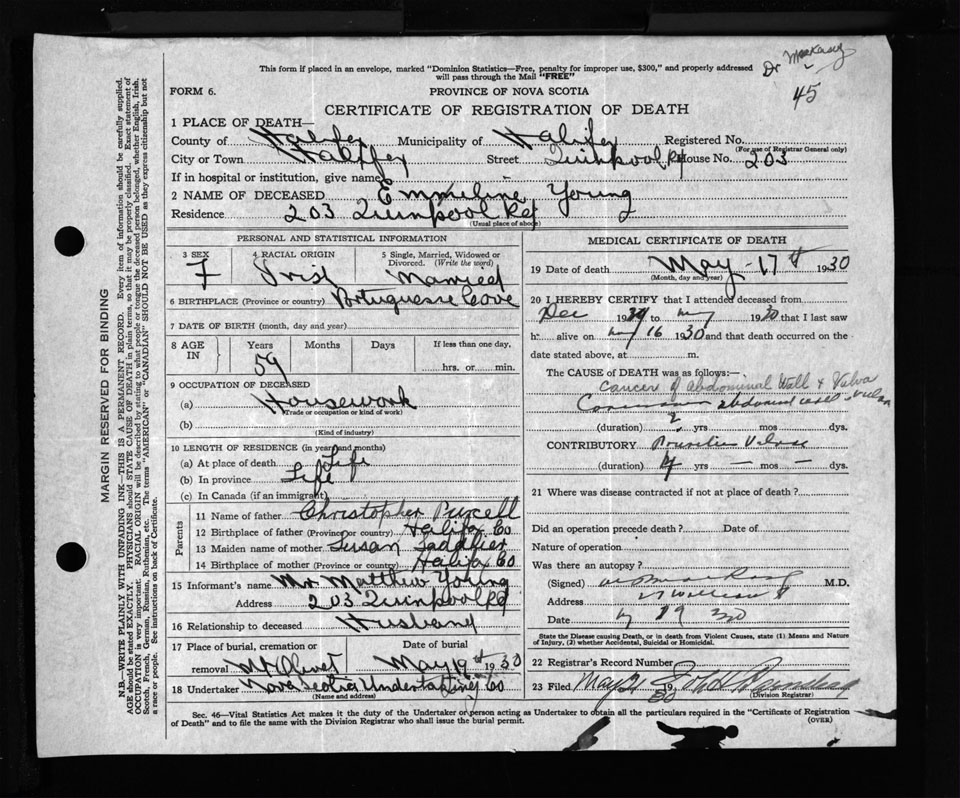 This form if placed in an envelope, marked "Dominion Statistics—Free, penalty for improper use, $300," and properly addressed
will pass through the Mail "FREE"
Dr
45
FORM 6.
PROVINCE OF NOVA SCOTIA
CERTIFICATE OF REGISTRATION OF DEATH
1 PLACE OF DEATH—
County of Halifax Municipality of Halifax Registered No.
(For use of Registrar General only)
City or Town Halifax Street Quinpool Rd House No. 203
If in hospital or institution, give name
2 NAME OF DECEASED Emmeline Young
Residence 203 Quinpool Rd
(Usual place of abode)
PERSONAL AND STATISTICAL INFORMATION
3 SEX F
4 RACIAL ORIGIN Irish
5 Single, Married, Widowed or Divorced. (Write the word) Married
6 BIRTHPLACE (Province or country) Portuguese Cove
7 DATE OF BIRTH (month, day and year)
8 AGE IN Years 59 Months Days If less than one day, hrs. or min.
9 OCCUPATION OF DECEASED
(a) Housework
(Trade or occupation or kind of work)
(b)
(Kind of industry)
10 LENGTH OF RESIDENCE (in years and months)
(a) At place of death Life
(b) In province Life
(c) In Canada (if an immigrant)
Parents
11 Name of father Christopher Purcell
12 Birthplace of father (Province or country) Halifax Co
13 Maiden name of mother Susan Saddlier
14 Birthplace of mother (Province or country) Halifax Co
15 Informant's name Mr Matthew Young
Address 203 Quinpool Rd
16 Relationship to deceased Husband
17 Place of burial, cremation or removal Mt Olivet
Date of burial May 19th 1930
18 Undertaker Nova Scotia Undertaking Co
(Name and address)
MEDICAL CERTIFICATE OF DEATH
19 Date of death May 17th 1930
(Month, day and year)
20 I HEREBY CERTIFY that I attended deceased from
Dec 19 to May 1930 that I last saw
h alive on May 16 1930 and that death occurred on the
date stated above, at m.
The CAUSE of DEATH was as follows:—
Cancer of Abdominal Wall & Vulva
abdominal
(duration) 2 yrs mos dys.
CONTRIBUTORY
(duration) 4 yrs — mos — dys.
21 Where was disease contracted if not at place of death?
Did an operation precede death? Date of
Nature of operation
Was there an autopsy?
(Signed) M.D.
Address
Date 19 30
State the Disease causing Death, or in death from Violent Causes, state (1) Means and Nature
of Injury, (2) whether Accidental, Suicidal or Homicidal.
22 Registrar's Record Number
23 Filed May 21 1930
(Division Registrar)
Sec. 46—Vital Statistics Act makes it the duty of the Undertaker or person acting as Undertaker to obtain all the particulars required in the "Certificate of Registration
of Death" and to file the same with the Division Registrar who shall issue the burial permit.
(OVER)
MARGIN RESERVED FOR BINDING
N.B.—WRITE PLAINLY WITH UNFADING INK—THIS IS A PERMANENT RECORD. Every item of information should be carefully supplied.
AGE should be stated EXACTLY. PHYSICIANS should STATE CAUSE OF DEATH in plain terms, so that it may be properly classified. Exact statement of
OCCUPATION is very important. RACIAL ORIGIN will be described by stating to what people or tongue the deceased person belonged, whether English, Irish,
Scotch, French, German, Russian, Ruthenian, etc. The terms "AMERICAN" or "CANADIAN" SHOULD NOT BE USED as they express citizenship but not
a race or people. See instructions on back of Certificate.